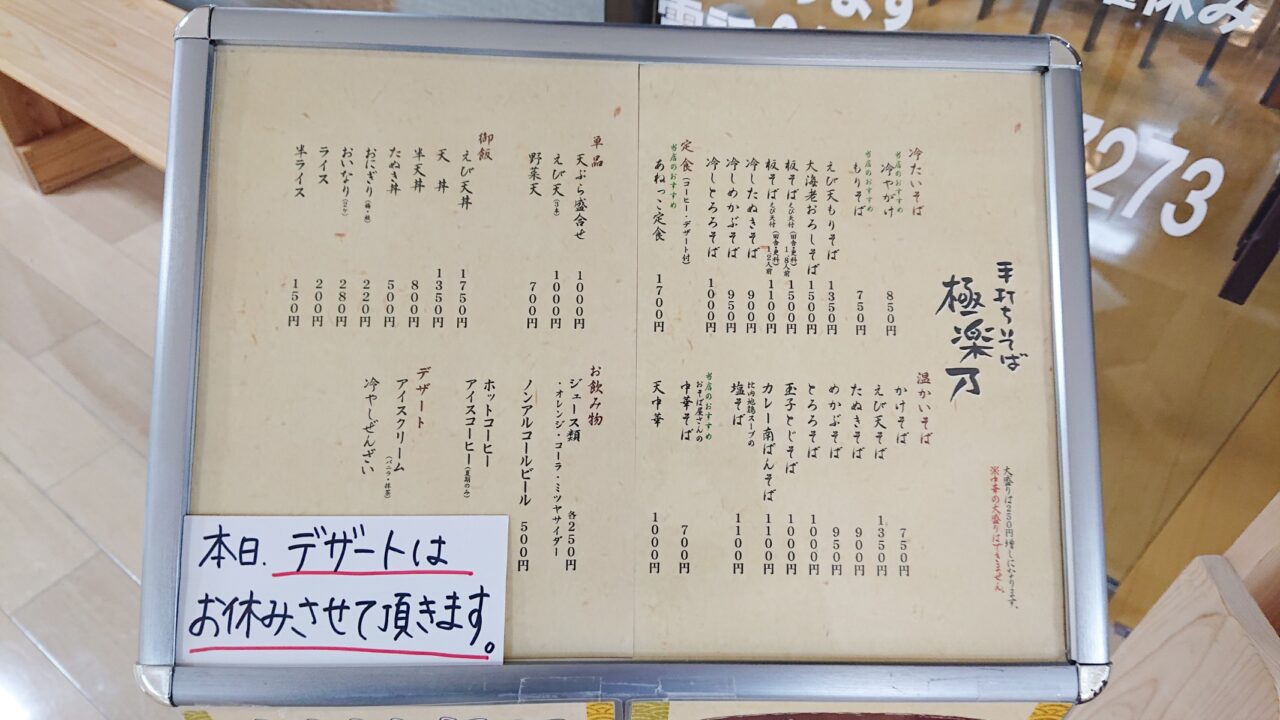 手打ちそば
極楽乃
大盛りは250円増しになります。
※中華の大盛りはできません。
冷たいそば
当店のおすすめ
冷やがけ 850円
当店のおすすめ
もりそば 750円
えび天もりそば 1350円
大海老おろしそば 1500円
板そば えび天付(田舎・更科)1.8人前 1500円
板そば えび天付(田舎・更科)1.2人前 1100円
冷したぬきそば 900円
冷しめかぶそば 950円
冷しとろろそば 1000円
定食(コーヒー・デザート付)
当店のおすすめ
あねっこ定食 1700円
温かいそば
かけそば 750円
えび天そば 1350円
たぬきそば 900円
めかぶそば 950円
とろろそば 1000円
玉子とじそば 1000円
カレー南ばんそば 1100円
比内地鶏スープの
塩そば 1100円
当店のおすすめ
おそば屋さんの
中華そば 700円
天中華 1000円
単品
天ぷら盛合せ 1000円
えび天 1000円
野菜天 700円
御飯
えび天丼 1750円
天丼 1350円
半天丼 800円
たぬき丼 500円
おにぎり 220円
おいなり(2ケ) 280円
ライス 200円
半ライス 150円
お飲み物
ジュース類 各250円
・オレンジ・コーラ・ミツヤサイダー
ノンアルコールビール 500円
ホットコーヒー
アイスコーヒー(夏期のみ)
デザート
アイスクリーム(バニラ・抹茶)
冷やしぜんざい
本日、デザートは
お休みさせて頂きます。
7273